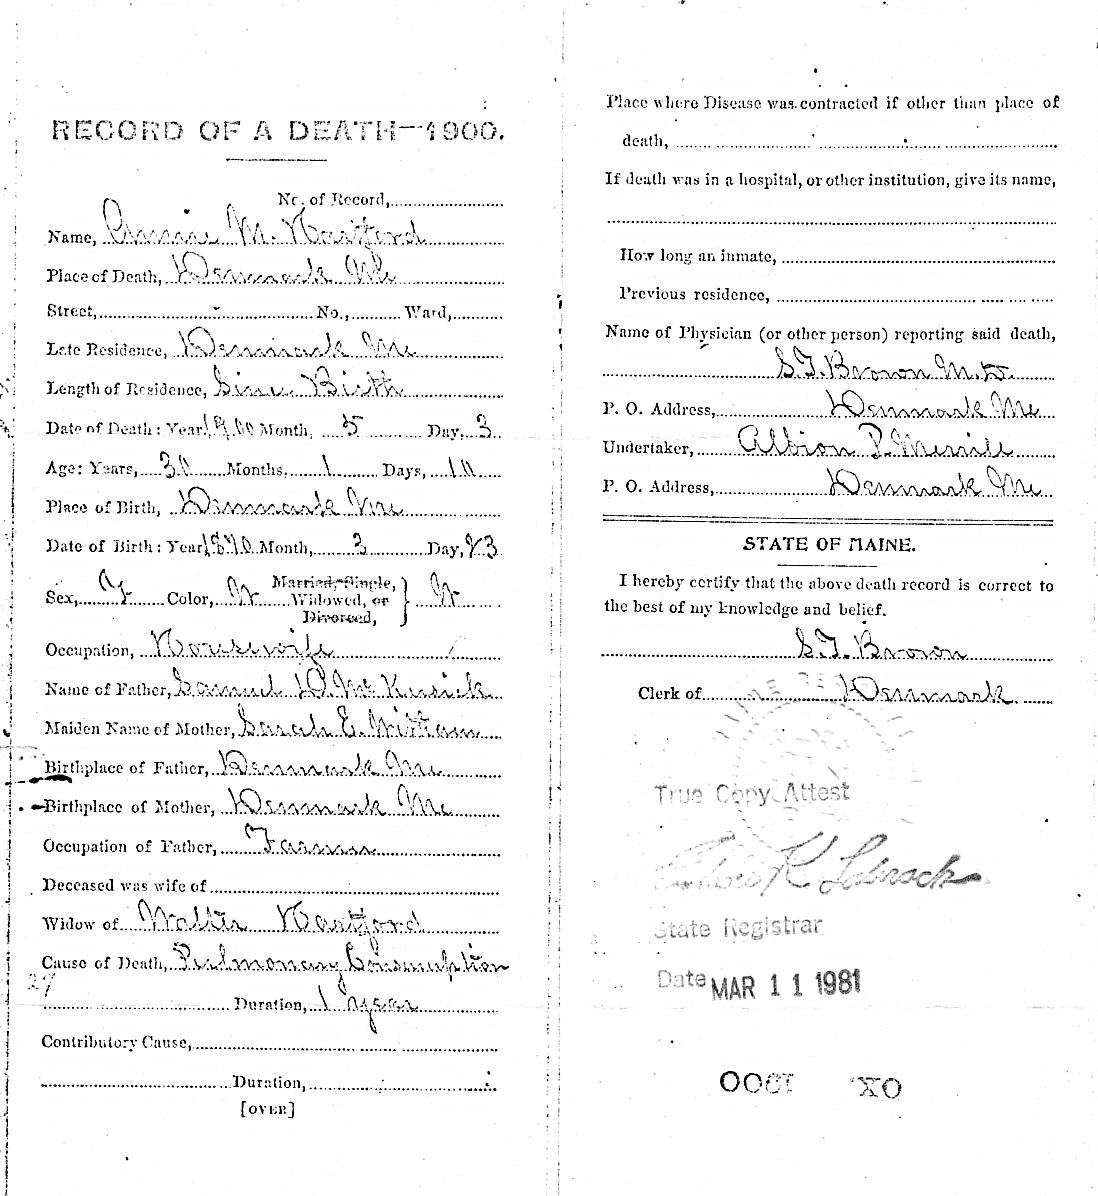 RECORD OF A DEATH—1900.
No. of Record,
Name, Annie M. Hartford
Place of Death, Denmark Me
Street, No., Ward,
Late Residence, Denmark Me
Length of Residence, Since Birth
Date of Death: Year, 1900 Month, 5 Day, 3
Age: Years, 30 Months, 1 Days, 10
Place of Birth, Denmark Me
Date of Birth: Year 1870 Month, 3 Day, 23
Sex, F Color, W Married, Single, Widowed, or Divorced, } W
Occupation, Housewife
Name of Father, Samuel D. McKusick
Maiden Name of Mother, Sarah E. Wittam
Birthplace of Father, Denmark Me
Birthplace of Mother, Denmark Me
Occupation of Father, Farmer
Deceased was wife of
Widow of Walter Hartford
Cause of Death, Pulmonary Consumption
27
Duration, 1 year
Contributory Cause,
Duration,
[OVER]
Place where Disease was contracted if other than place of
death,
If death was in a hospital, or other institution, give its name,
How long an inmate,
Previous residence,
Name of Physician (or other person) reporting said death,
S.T. Brown M.D.
P. O. Address, Denmark Me
Undertaker, Albion P. Merrill
P. O. Address, Denmark Me
STATE OF MAINE.
I hereby certify that the above death record is correct to
the best of my knowledge and belief.
S.T. Brown
Clerk of Denmark
True Copy Attest
State Registrar
Date MAR 11 1981